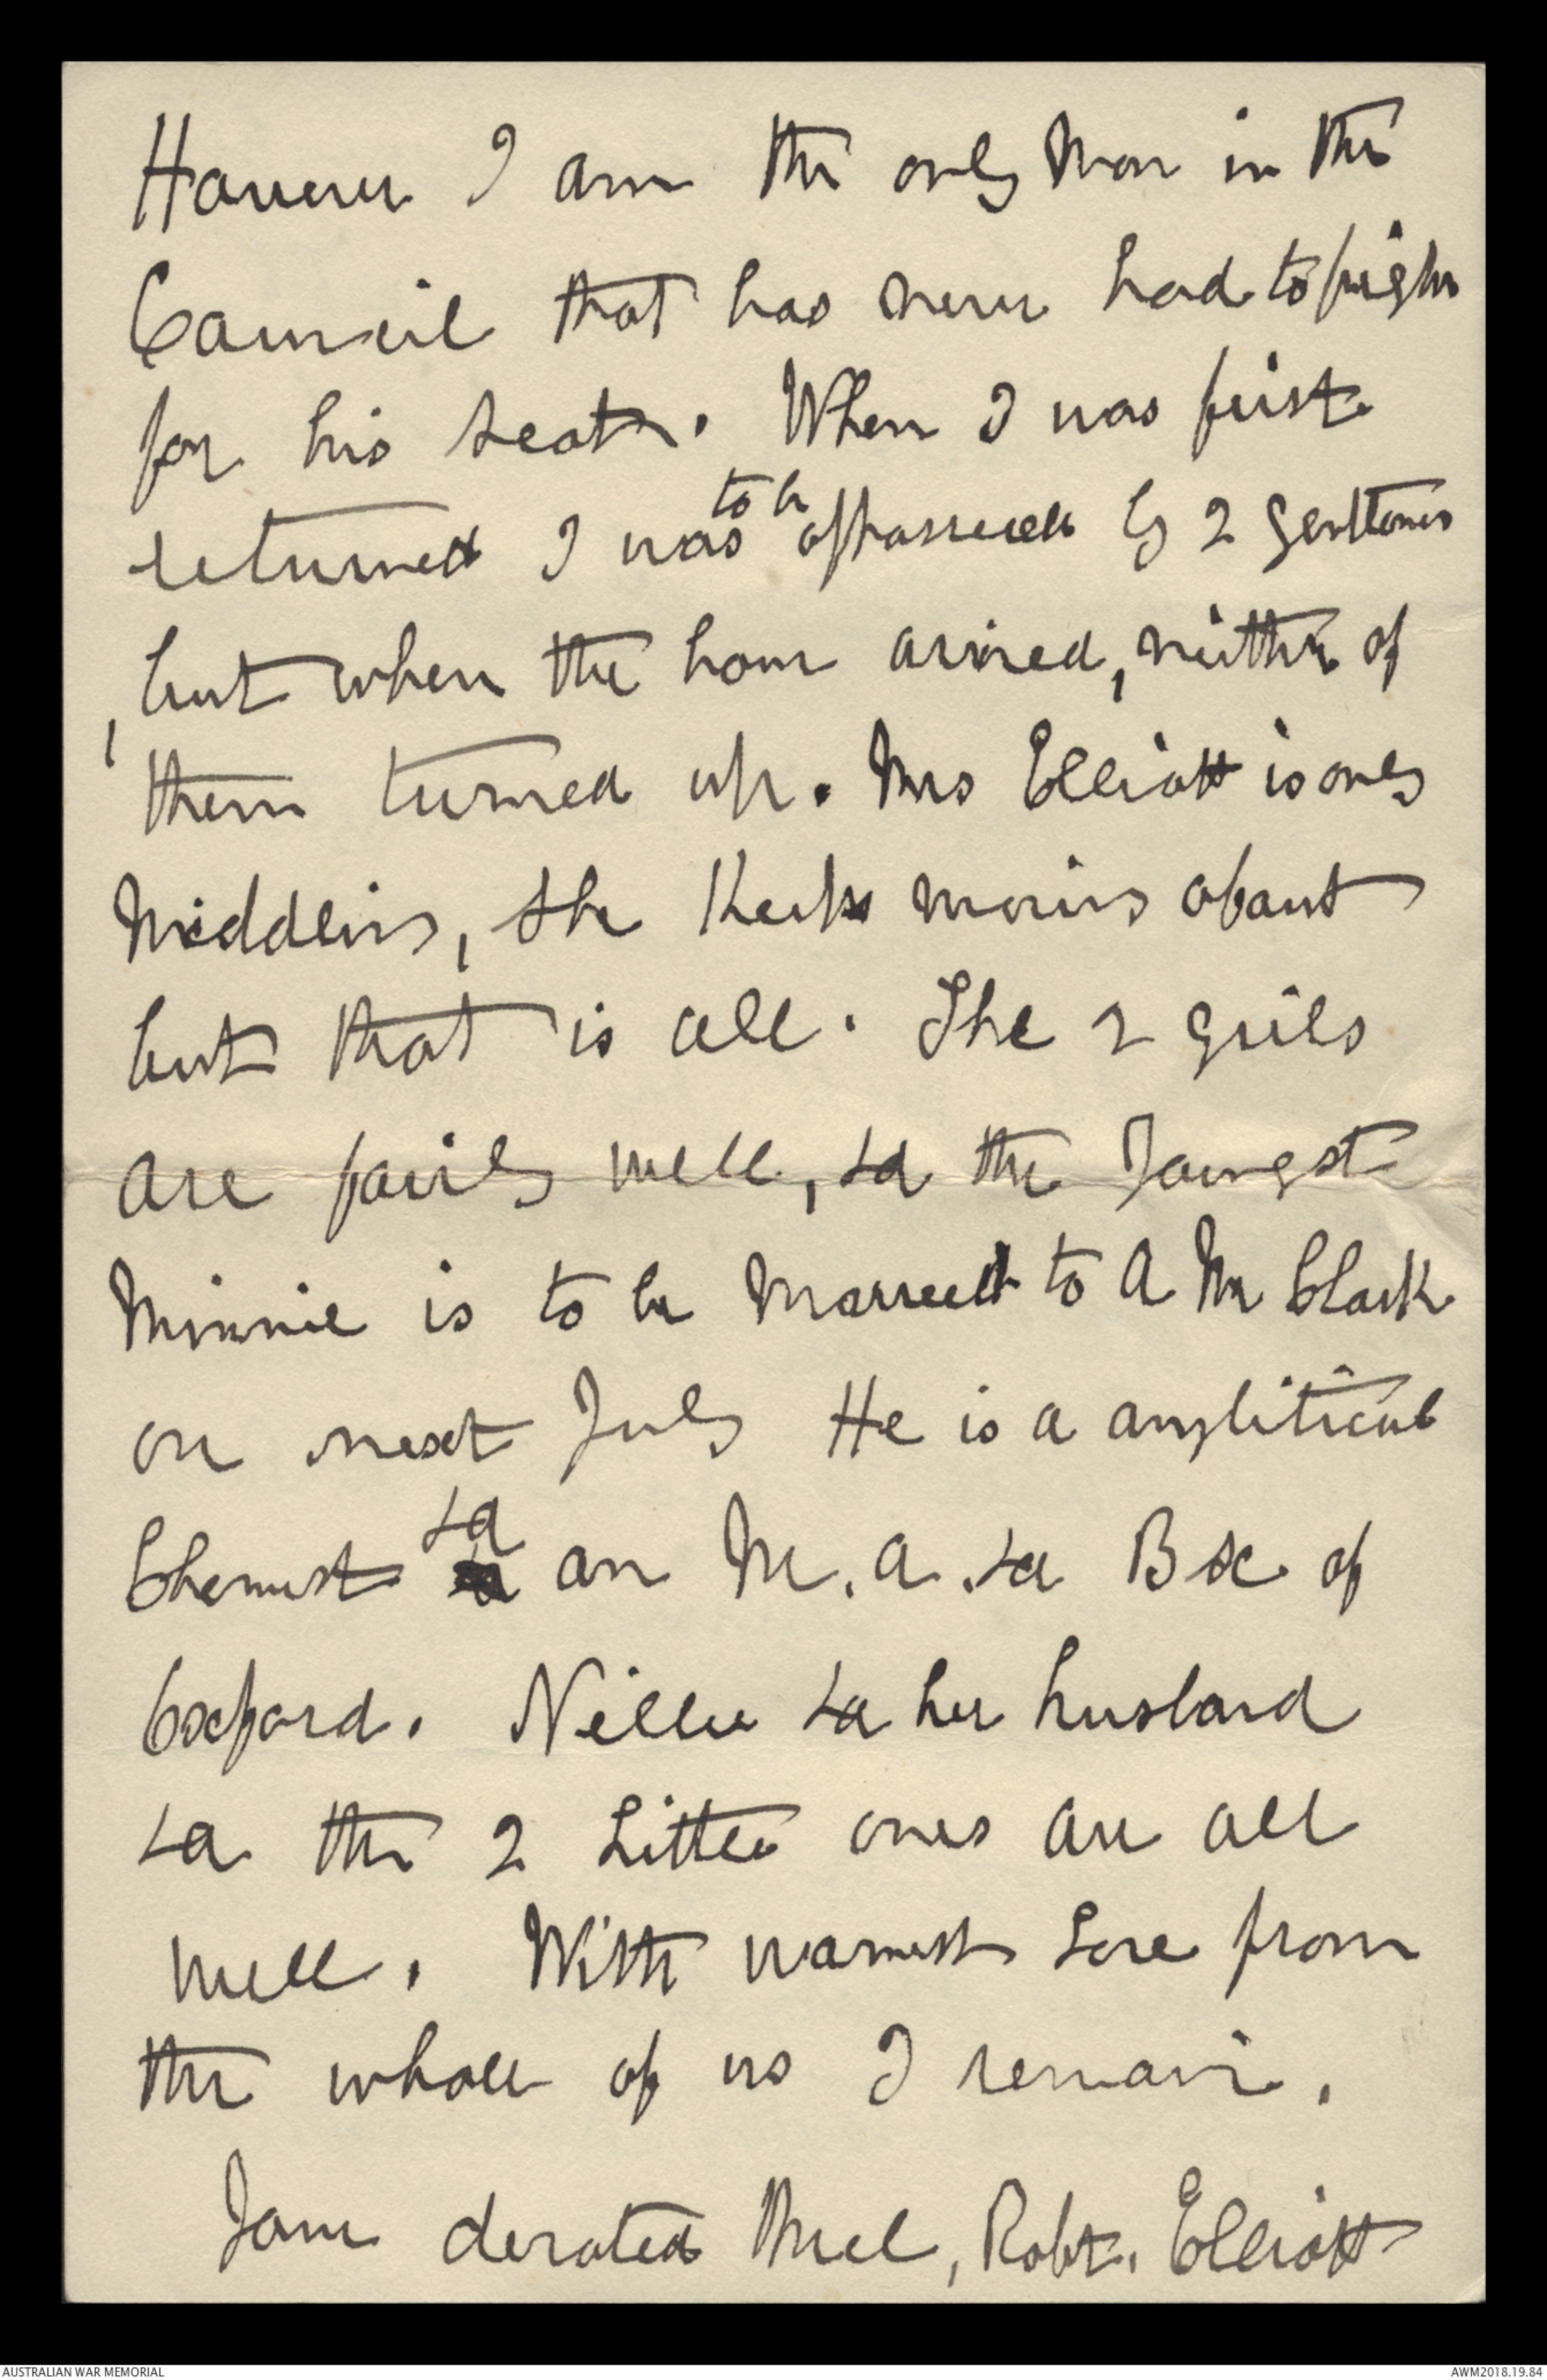 However I am the only man in the
Council that has never had to fight
for his seat. When I was first
returned I was to be opposed by 2 gentlemen
, but when the hour arrived, neither of
them turned up. Mrs Elliott is only
middling, she keeps moving about
but that is all. The 2 girls
are fairly well, & the youngest
Minnie is to be married to a Mr Clark
on next July He is a anylitical
Chemist & an M.A. & B Sc of
Oxford. Nellie & her husband
& the 2 little ones are all
well. With warmest love from
the whole of us I remain.
Your devoted Uncle, Robt. Elliott
AUSTRALIAN WAR MEMORIAL
AWM2018.19.84